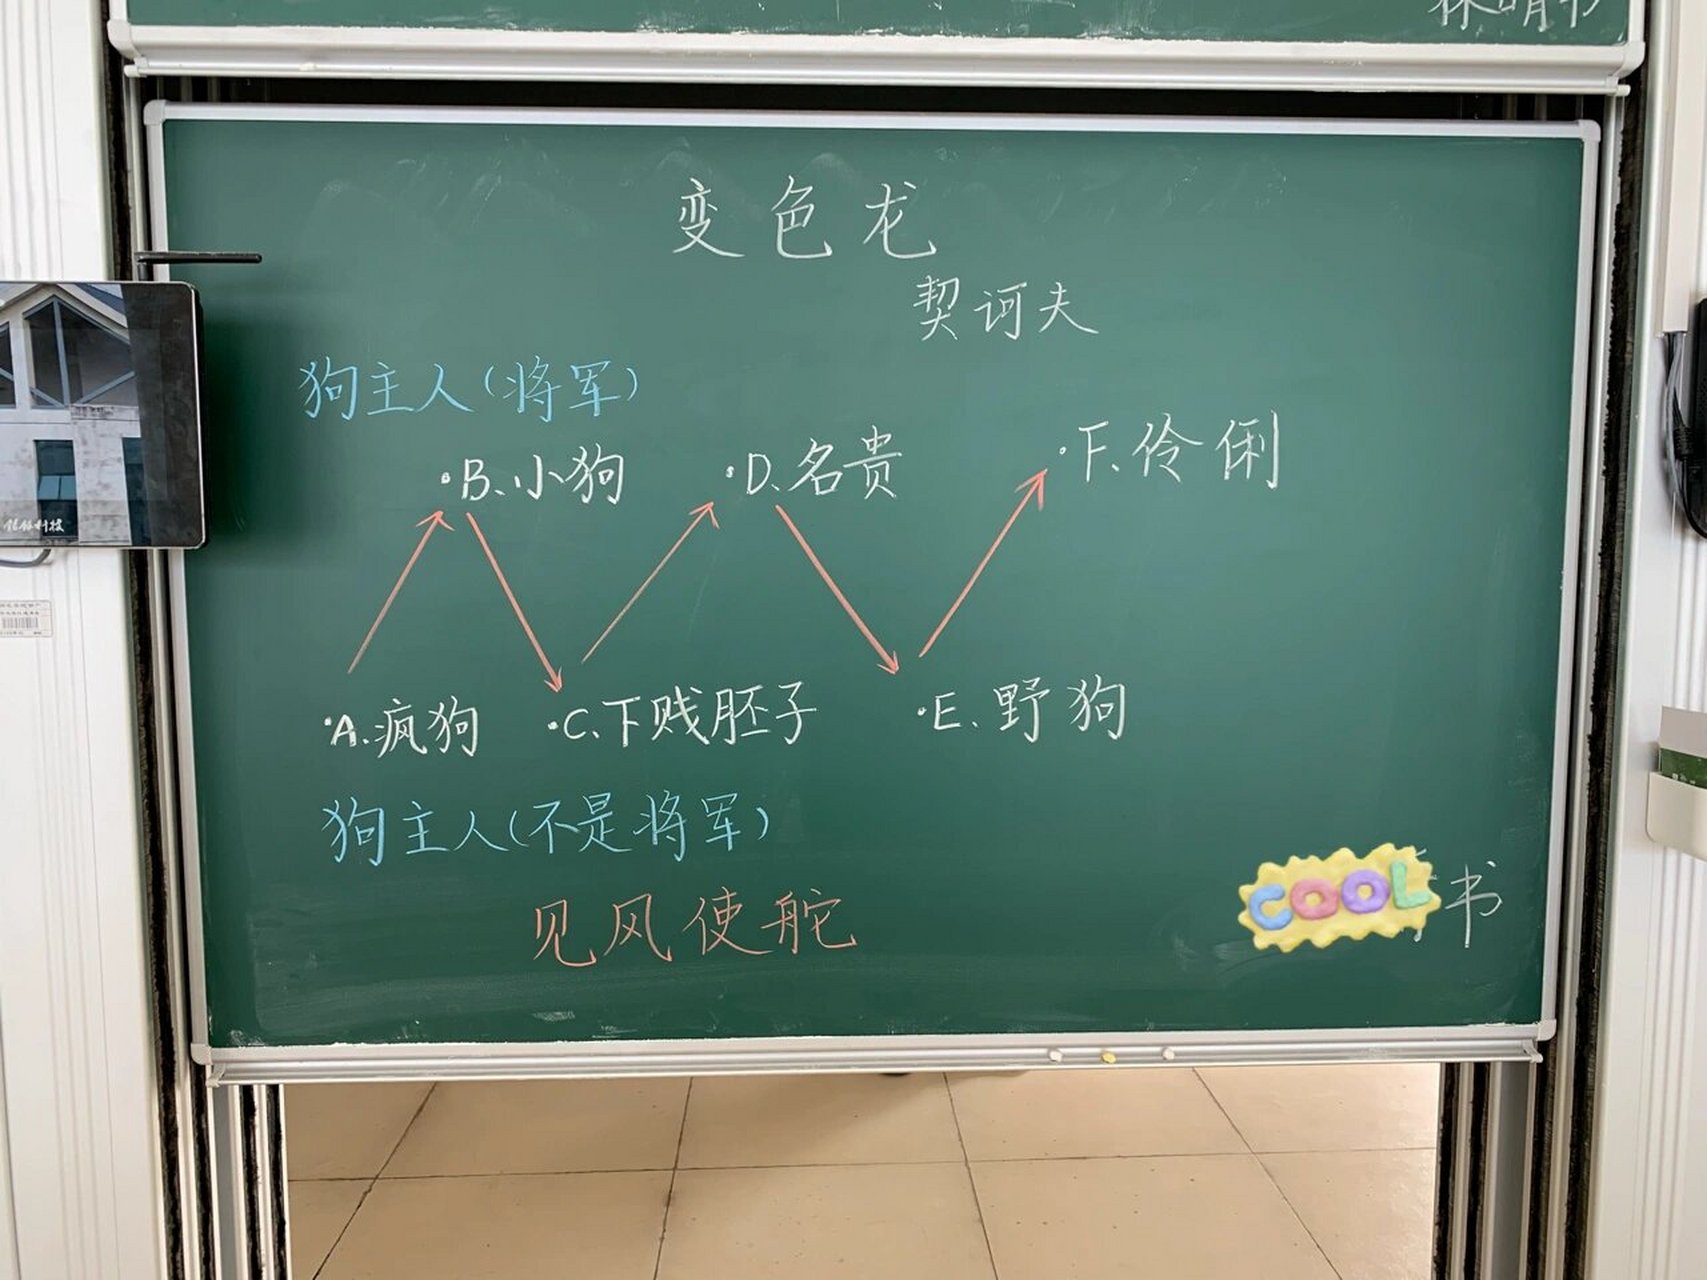 变色龙
契诃夫
狗主人(将军)
·B、小狗
·D、名贵
·F、伶俐
·A.疯狗
·C、下贱胚子
·E.野狗
狗主人(不是将军)
见风使舵
COOL
书